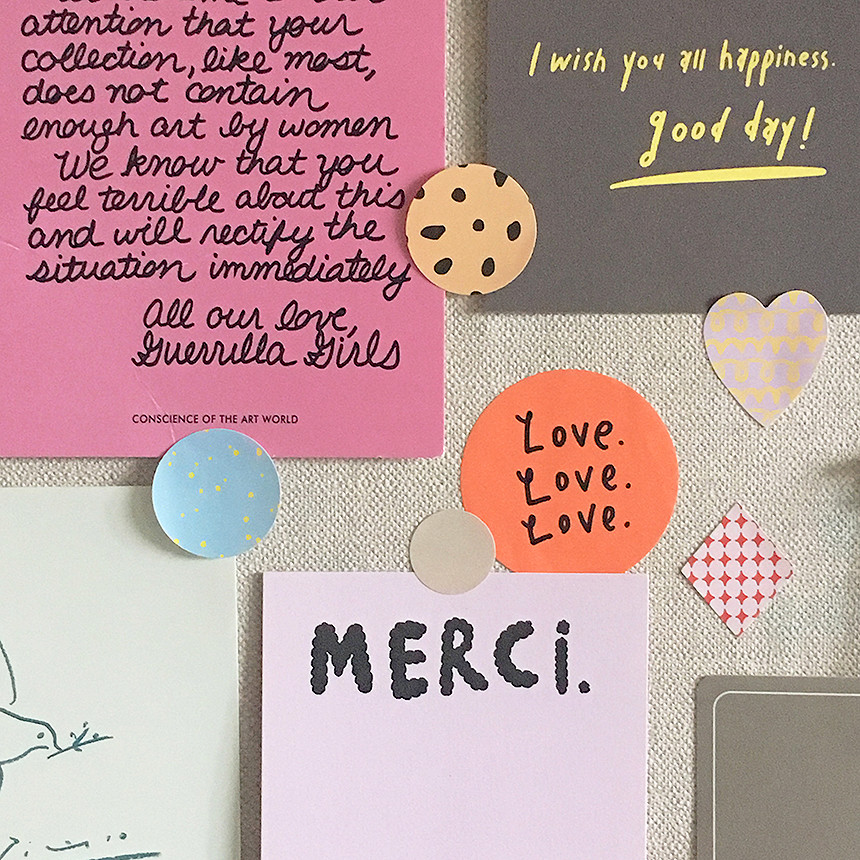 attention that your
collection, like most,
does not contain
enough art by women
We know that you
feel terrible about this
and will rectify the
situation immediately
All our love,
Guerrilla Girls
CONSCIENCE OF THE ART WORLD
I wish you all happiness.
good day!
Love.
Love.
Love.
MERCi.